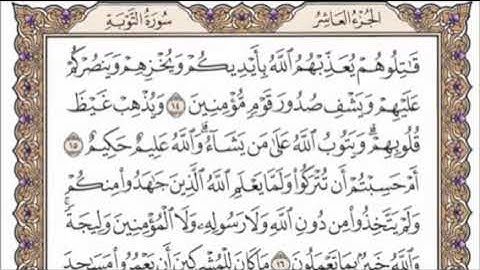 الجزء العاشر
سورة التوبة
قَٰتِلُوهُمْ يُعَذِّبْهُمُ ٱللَّهُ بِأَيْدِيكُمْ وَيُخْزِهِمْ وَيَنصُرْكُمْ
عَلَيْهِمْ وَيَشْفِ صُدُورَ قَوْمٍ مُّؤْمِنِينَ ١٤ وَيُذْهِبْ غَيْظَ
قُلُوبِهِمْ ۗ وَيَتُوبُ ٱللَّهُ عَلَىٰ مَن يَشَآءُ ۗ وَٱللَّهُ عَلِيمٌ حَكِيمٌ ١٥
أَمْ حَسِبْتُمْ أَن تُتْرَكُوا۟ وَلَمَّا يَعْلَمِ ٱللَّهُ ٱلَّذِينَ جَٰهَدُوا۟ مِنكُمْ
وَلَمْ يَتَّخِذُوا۟ مِن دُونِ ٱللَّهِ وَلَا رَسُولِهِۦ وَلَا ٱلْمُؤْمِنِينَ وَلِيجَةً ۚ
وَٱللَّهُ خَبِيرٌۢ بِمَا تَعْمَلُونَ ١٦ مَا كَانَ لِلْمُشْرِكِينَ أَن يَعْمُرُوا۟ مَسَٰجِدَ